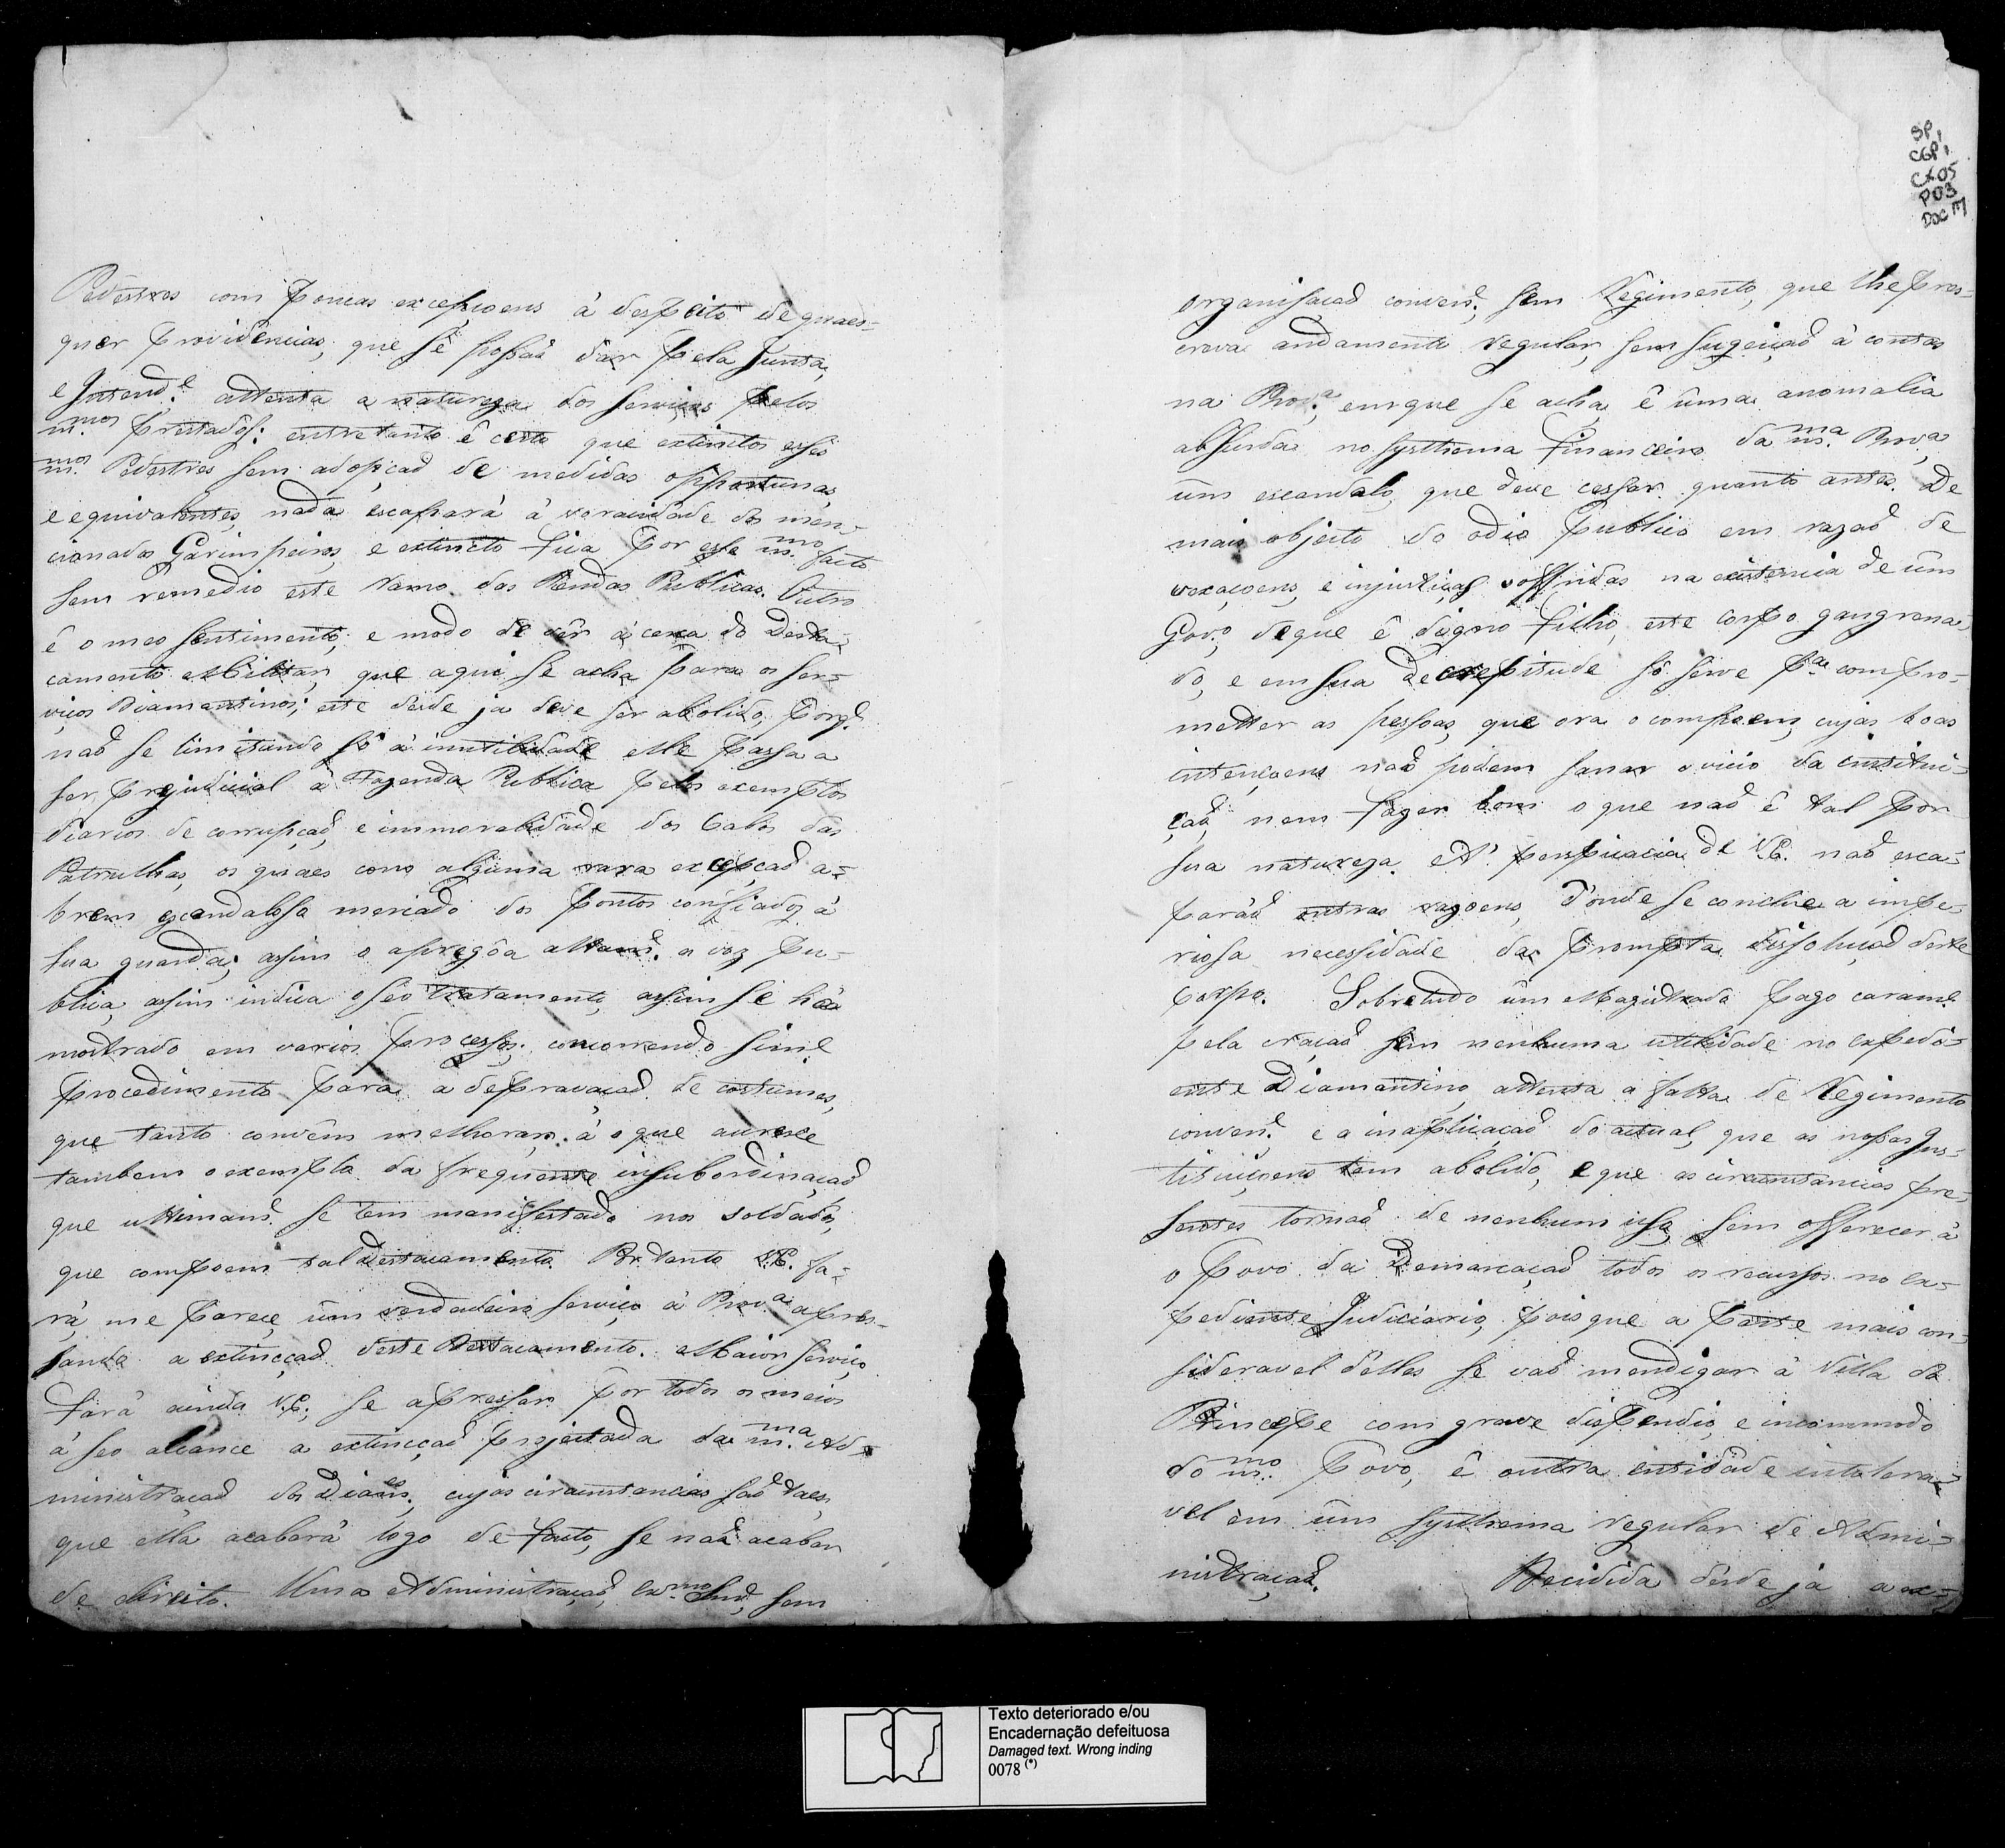 Pedestres com poucas excepçoens à despeito de quaes-
quer providencias, que se possaõ dar pela Junta,
e Intend.e attenta a natureza dos serviços pelos
m.mos prestados: entretanto ê certo que extinctos esses
m.mos Pedestres sem adopçaõ de medidas opportunas,
e equivalentes, nada escapará à voracidade dos men-
cionados Garimpeiros, e extincto fica por esse m.mo facto
sem remedio este Ramo das Rendas Publicas. Outro
ê o meo sentimento, e modo de vêr àcerca do Desta-
camento Militar, que aqui se acha para os ser-
viços Diamantinos; este desde ja deve ser abolido, porq.
naõ se limitando só à inutilidade elle passa a
ser prejudicial à Fazenda Publica pelos exemplos
diarios de corrupçaõ, e immoralidade dos Cabos das
Patrulhas, os quaes com alguma rara excepçaõ a-
brem escandaloso mercado dos pontos confiados à
sua guarda; assim o apregôa altam.e a voz pu-
blica, assim indica o seo tratamento, assim se há
mostrado em varios processos; concorrendo simil
procedimento para a depravaçaõ de costumes,
que tanto convêm melhorar: à o que accresce
tambem o exemplo da frequente insubordinaçaõ
que ultimam.e se tem manifestado nos soldados,
que compoem tal Destacamento. Portanto V.E. fa-
rá, me parece, um verdadeiro serviço à Prov.a apres-
sando a extincçaõ deste Destacamento. Maior serviço
fará ainda V.E., se apressar por todos os meios
à seo alcance a extincçaõ projectada da m.ma Ad-
ministraçaõ dos Diam.es, cujas circunstancias saõ taes,
que ella acabará logo de facto, se naõ acabar
de direito. Uma Administraçaõ, Ex.mo Snr., sem
SP
CGP1
CX.05
P03
DOC
organisaçaõ conven.e, sem Regimento, que lhe pres-
creva andamento regular, sem sugeiçaõ à contas
na Prov.a, em que se acha ê uma anomalia
absurda no systhema financeiro da m.ma Prov.a,
um escandalo, que deve cessar quanto antes. De
mais objecto do odio publico em razaõ de
vexaçoens, e injustiças soffridas na existencia de um
Gov.o, de que ê digno filho, este corpo gangrena-
do, e em sua decrepitude só serve p.a compro-
metter as pessoas, que ora o compoem, cujas boas
intençoens naõ podem sanar o vicio da institui-
çaõ, nem fazer bom o que naõ ê tal por
sua natureza. A' perspicacia de V.E. naõ esca-
paráõ outras razoens, d'onde se conclue a impe-
riosa necessidade da prompta dissoluçaõ deste
Corpo. Sobretudo um Magistrado pago caram.e
pela Naçaõ sem nenhuma utilidade no expedi-
ente Diamantino, attenta a falta de Regimento
conven.e e a inaplicaçaõ do actual, que as nossas Ins-
tituiçoens tem abolido, e que as circunstancias pre-
sentes tornaõ de nenhum uso, sem offerecer à
o Povo da Demarcaçaõ todos os recursos no ex-
pediente Judiciario, pois que a parte mais con-
sideravel d'elles se vaõ mendigar à Villa do
Principe com grave dispendio, e incommodo
do m.mo Povo, ê outra entidade intolera-
vel em um systhema regular de Admi-
nistraçaõ. Decidida desde ja a ex-
Texto deteriorado e/ou
Encadernação defeituosa
Damaged text. Wrong inding
0078 (*)